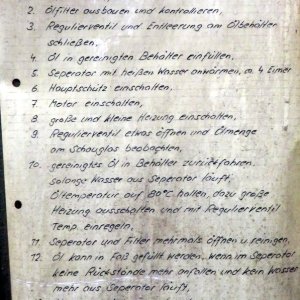 2. Ölfilter ausbauen und kontrollieren,
3. Regulierventil und Entleerung am Ölbehälter
schließen,
4. Öl in gereinigten Behälter einfüllen,
5. Seperator mit heißen Wasser anwärmen, ca. 4 Eimer
6. Hauptschütz einschalten,
7. Motor einschalten,
8. große und kleine Heizung einschalten,
9. Regulierventil etwas öffnen und Ölmenge
am Schauglas beobachten,
10. gereinigtes Öl in Behälter zurückfahren
solange Wasser aus Seperator läuft,
Öltemperatur auf 80°C halten, dazu große
Heizung ausschalten und mit Regulierventil
Temp. einregeln,
11. Seperator und Filter mehrmals öffnen u. reinigen,
12. Öl kann in Faß gefüllt werden, wenn im Seperator
keine Rückstände mehr anfallen und kein Wasser
mehr aus Seperator läuft,